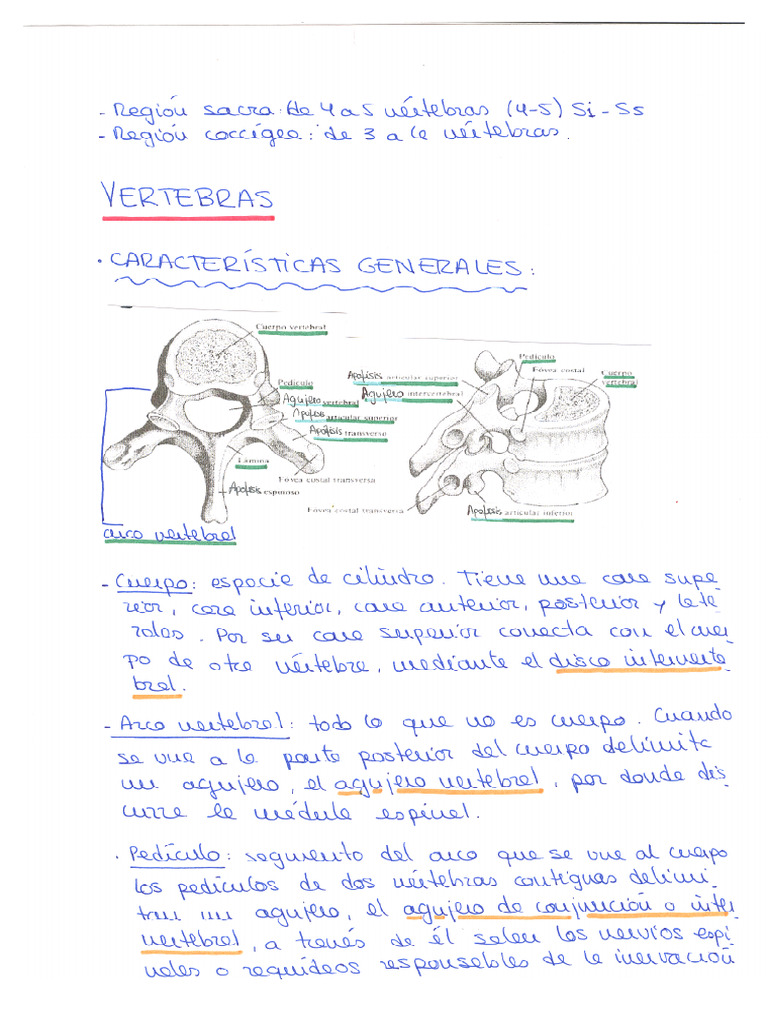 - Región sacra: de 4 a 5 vértebras (4-5) S1 - S5
- Región coccígea: de 3 a 4 vértebras.
VERTEBRAS
· CARACTERÍSTICAS GENERALES:
Cuerpo vertebral
Pedículo
Agujero vertebral
Apófisis articular superior
Apófisis transverso
Lámina
Fóvea costal transversa
Apófisis espinoso
Fóvea costal transversa
arco vertebral
Pedículo
Fóvea costal
Apófisis articular superior
Cuerpo vertebral
Agujero intercertebral
Apófisis articular inferior
- Cuerpo: especie de cilindro. Tiene una cara supe-
rior, cara inferior, cara anterior, posterior y late-
rales. Por su cara superior conecta con el cuer-
po de otra vértebra, mediante el disco interverte-
bral.
- Arco vertebral: todo lo que no es cuerpo. Cuando
se une a la parte posterior del cuerpo delimita
un agujero, el agujero vertebral, por donde dis-
curre la médula espinal.
· Pedículo: segmento del arco que se une al cuerpo
los pedículos de dos vértebras contiguas delimi-
tan un agujero, el agujero de conjunción o inter-
vertebral, a través de él salen los nervios espi-
nales o raquídeos responsables de la inervación